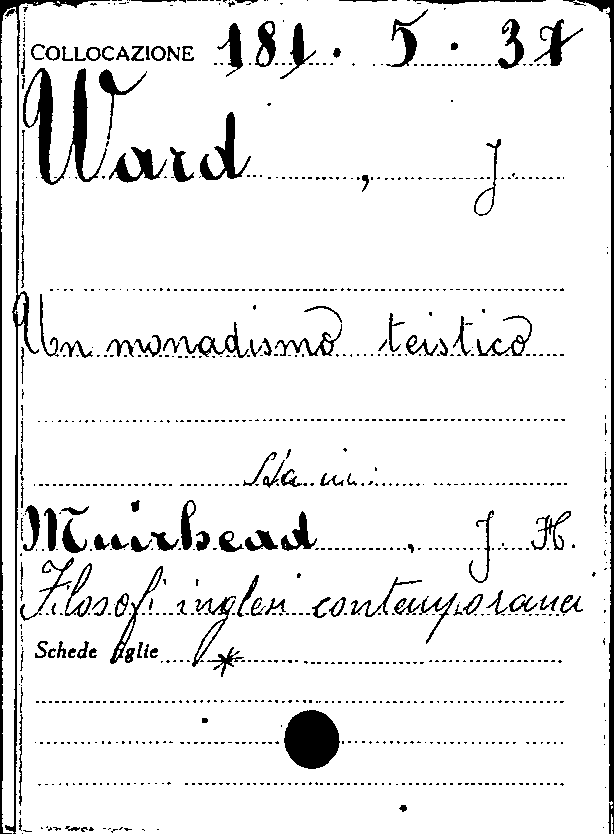 COLLOCAZIONE 181. 5. 37
Ward, J.
Un monadismo teistico
Sta in:
Muirhead, J. H.
Filosofi inglesi contemporanei
Schede figlie *